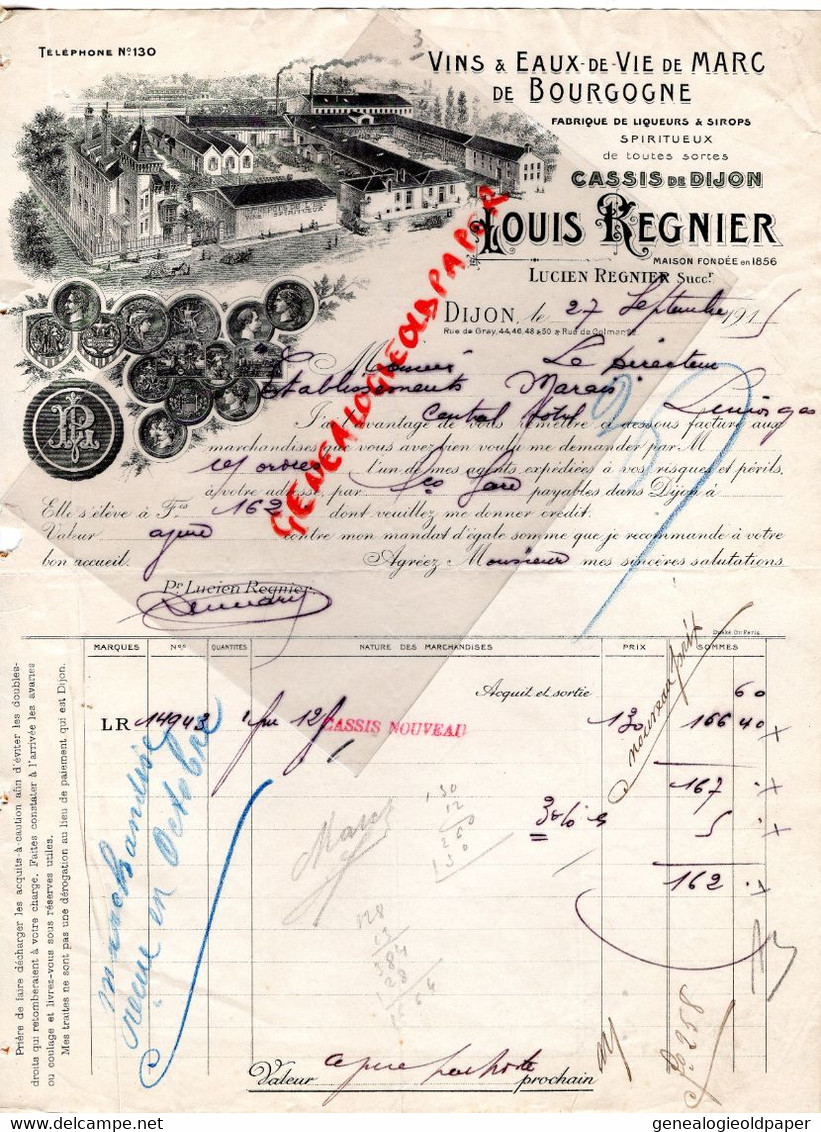 TÉLÉPHONE No 130
VINS & EAUX-DE-VIE DE MARC
DE BOURGOGNE
FABRIQUE DE LIQUEURS & SIROPS
SPIRITUEUX
de toutes sortes
CASSIS DE DIJON
LOUIS REGNIER
MAISON FONDÉE en 1856
LUCIEN REGNIER Succr
DIJON, le 27 Septembre 1915
Rue de Gray, 44, 46, 48 & 50 & Rue de Colmar
Le Directeur
Etablissements Marais
Central Hotel
J'ai l'avantage de vous remettre ci dessous facture aux
marchandises que vous avez bien voulu me demander par M
l'un de mes agents, expédiées à vos risques et périls,
à votre adresse, par Gare payables dans Dijon à
Elle s'élève à Fcs 162 dont veuillez me donner crédit.
Valeur contre mon mandat d'égale somme que je recommande à votre
bon accueil. Agréez Monsieur mes sincères salutations.
Pr Lucien Regnier.
GENEALOGIEOLDPAPER
MARQUES Nos QUANTITÉS NATURE DES MARCHANDISES PRIX SOMMES
Acquit et sortie 60
LR 14943 1 CASSIS NOUVEAU 130 166 40
nouveau prix
167
3% 5
162
marchandise
reçue en Octobre
130
12
260
130
128
13
384
128
1664
Valeur prochain
258
Prière de faire décharger les acquits-à-caution afin d'éviter les doubles-
droits qui retomberaient à votre charge. Faites constater à l'arrivée les avaries
ou coulage et livrez-vous sous réserves utiles.
Mes traites ne sont pas une dérogation au lieu de paiement qui est Dijon.
genealogieoldpaper